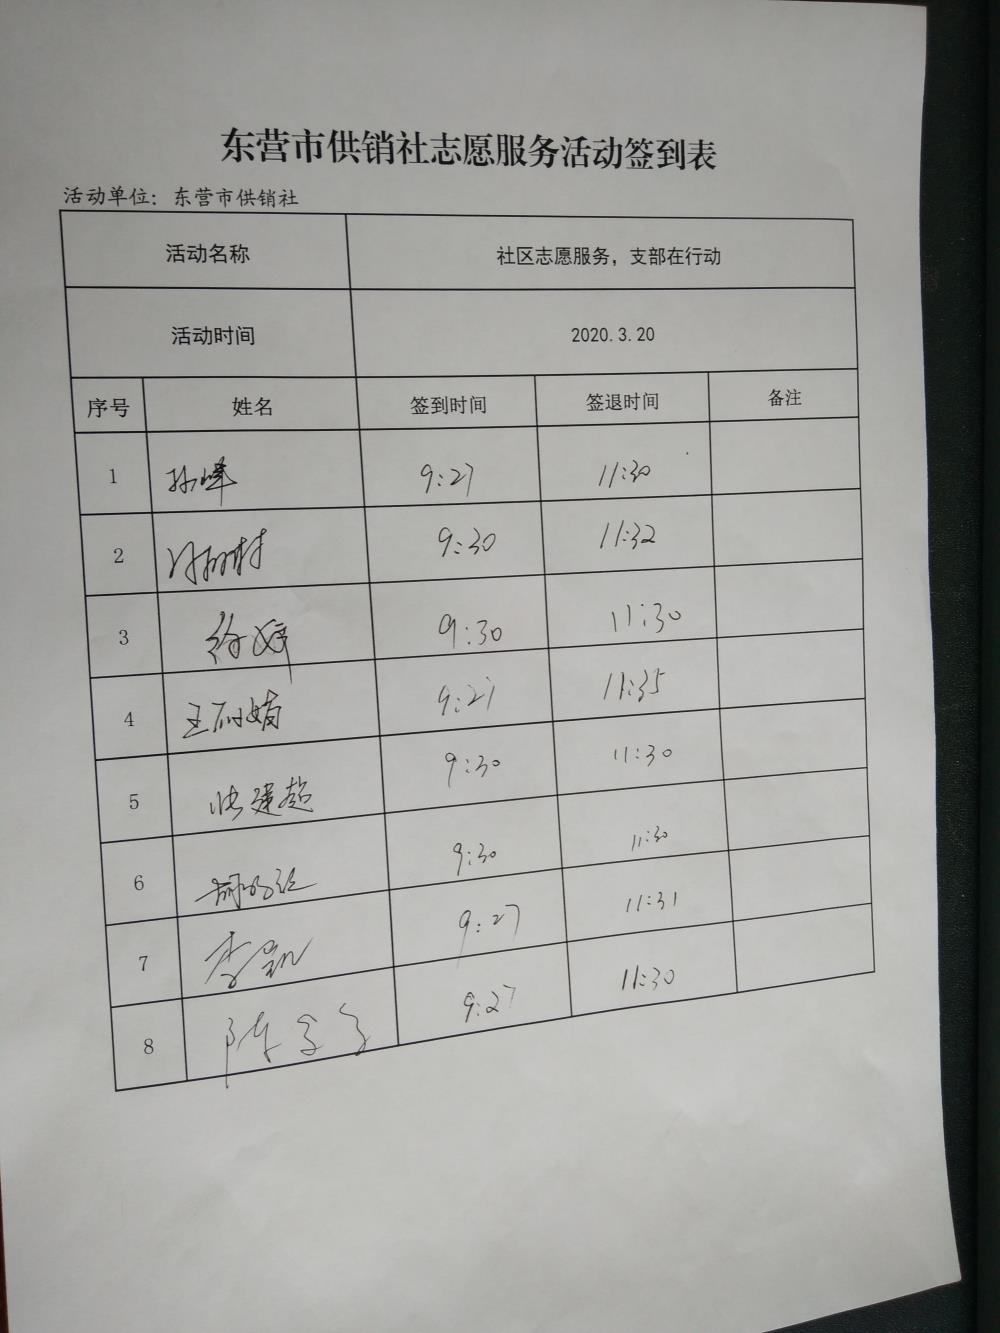 东营市供销社志愿服务活动签到表
活动单位：东营市供销社
活动名称 社区志愿服务，支部在行动
活动时间 2020.3.20
序号 姓名 签到时间 签退时间 备注
1 孙峰 9:27 11:30
2 9:30 11:32
3 徐婷 9:30 11:30
4 王丽娟 9:27 11:35
5 张建超 9:30 11:30
6 9:30 11:30
7 李凯 9:27 11:31
8 陈 9:27 11:30